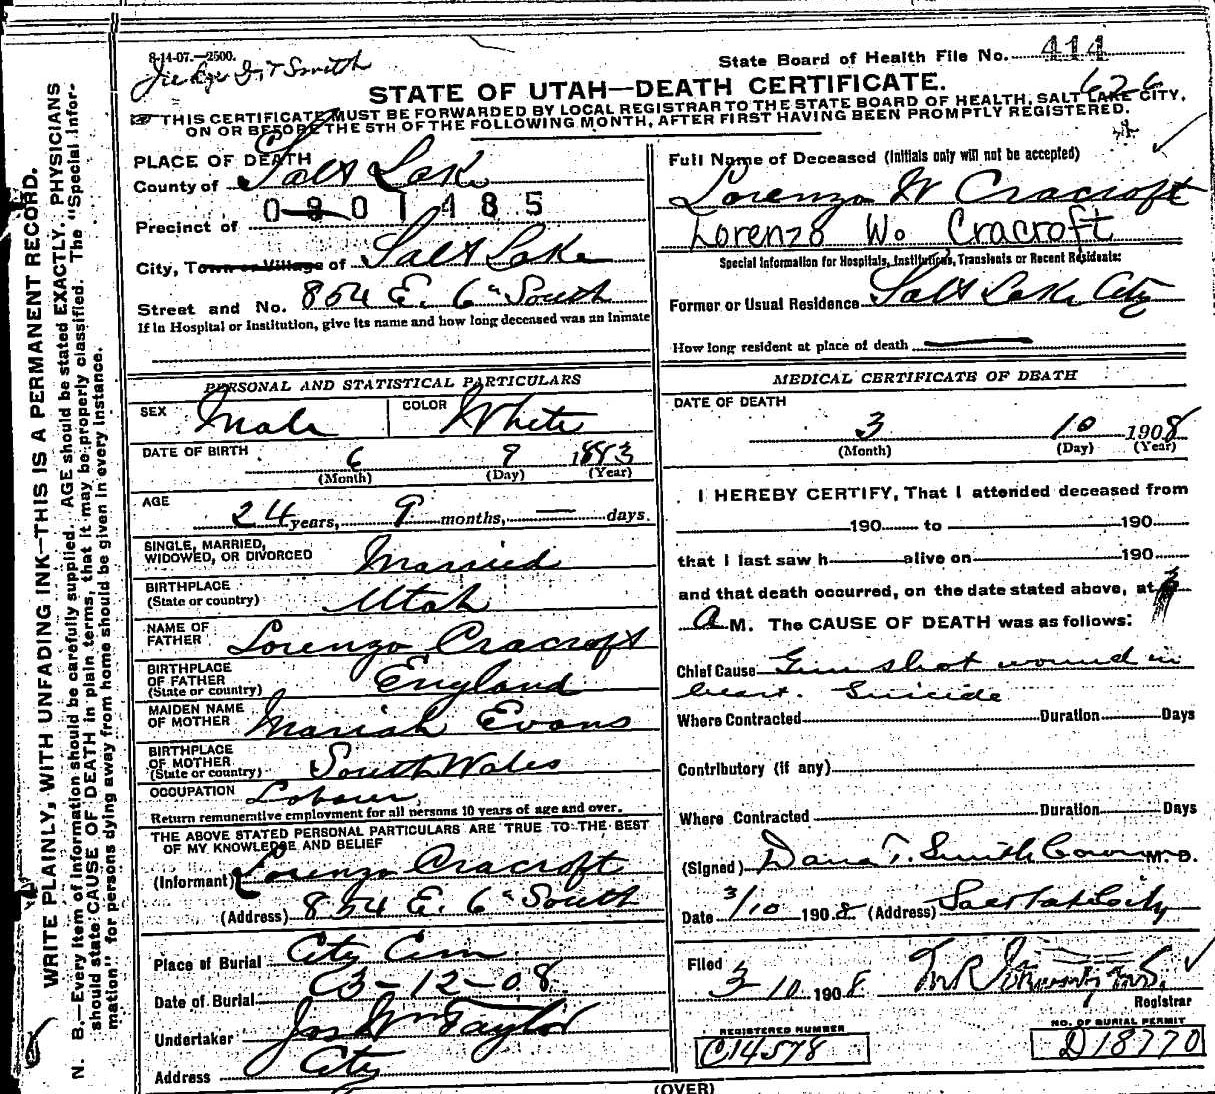 8-14-07.—2500.
State Board of Health File No. 414
Smith
STATE OF UTAH—DEATH CERTIFICATE.
626
THIS CERTIFICATE MUST BE FORWARDED BY LOCAL REGISTRAR TO THE STATE BOARD OF HEALTH, SALT LAKE CITY,
ON OR BEFORE THE 5TH OF THE FOLLOWING MONTH, AFTER FIRST HAVING BEEN PROMPTLY REGISTERED.
WRITE PLAINLY, WITH UNFADING INK—THIS IS A PERMANENT RECORD.
N. B.—Every item of information should be carefully supplied. AGE should be stated EXACTLY. PHYSICIANS
should state CAUSE OF DEATH in plain terms, that it may be properly classified. The "Special Infor-
mation" for persons dying away from home should be given in every instance.
PLACE OF DEATH
County of Salt Lake
0901485
Precinct of
City, Town or Village of Salt Lake
Street and No. 854 E. 6" South
If in Hospital or Institution, give its name and how long deceased was an inmate
PERSONAL AND STATISTICAL PARTICULARS
SEX Male COLOR White
DATE OF BIRTH 6 9 1883
(Month) (Day) (Year)
AGE 24 years, 9 months, — days.
SINGLE, MARRIED,
WIDOWED, OR DIVORCED Married
BIRTHPLACE
(State or country) Utah
NAME OF
FATHER Lorenzo Cracroft
BIRTHPLACE
OF FATHER
(State or country) England
MAIDEN NAME
OF MOTHER Mariah Evans
BIRTHPLACE
OF MOTHER
(State or country) South Wales
OCCUPATION Laborer
Return remunerative employment for all persons 10 years of age and over.
THE ABOVE STATED PERSONAL PARTICULARS ARE TRUE TO THE BEST
OF MY KNOWLEDGE AND BELIEF
(Informant) Lorenzo Cracroft
(Address) 854 E. 6" South
Place of Burial City Cem
Date of Burial 3-12-08
Undertaker Jos Wm Taylor
Address City
Full Name of Deceased (Initials only will not be accepted)
Lorenzo W Cracroft
Lorenzo W. Cracroft
Special Information for Hospitals, Institutions, Transients or Recent Residents:
Former or Usual Residence Salt Lake City
How long resident at place of death —
MEDICAL CERTIFICATE OF DEATH
DATE OF DEATH
3 10 1908
(Month) (Day) (Year)
I HEREBY CERTIFY, That I attended deceased from
190 to 190
that I last saw h alive on 190
and that death occurred, on the date stated above, at
A M. The CAUSE OF DEATH was as follows:
Chief Cause Gun shot wound in
heart. Suicide
Where Contracted Duration Days
Contributory (if any)
Where Contracted Duration Days
(Signed) Dana T. Smith Coroner M. D.
Date 3/10 1908 (Address) Salt Lake City
Filed
3 10 1908
Registrar
REGISTERED NUMBER
C14578
NO. OF BURIAL PERMIT
D18770
(OVER)